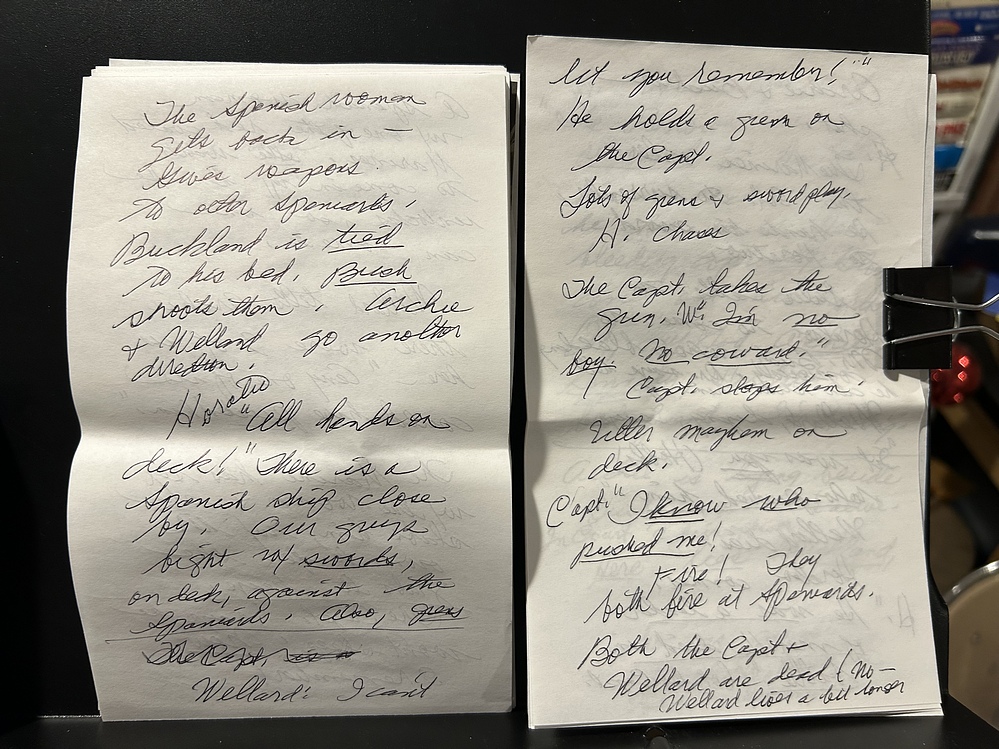 The Spanish woman
gets back in —
Gives weapons
to other Spaniards.
Buckland is tied
to his bed. Bush
shoots them. Archie
+ Wellard go another
direction.
Horatio
"All hands on
deck!" There is a
Spanish ship close
by. Our guys
fight w/ swords,
on deck, against the
Spaniards. Also, guns
The Capt.
Wellard: I can't
let you remember!"
He holds a gun on
the Capt.
Lots of guns + swordplay.
H. chaos
The Capt. takes the
gun. W: "I'm no
boy. No coward."
Capt. slaps him.
Utter mayhem on
deck.
Capt: "I know who
pushed me!
Fire! They
both fire at Spaniards.
Both the Capt +
Wellard are dead! No—
Wellard lives a bit longer